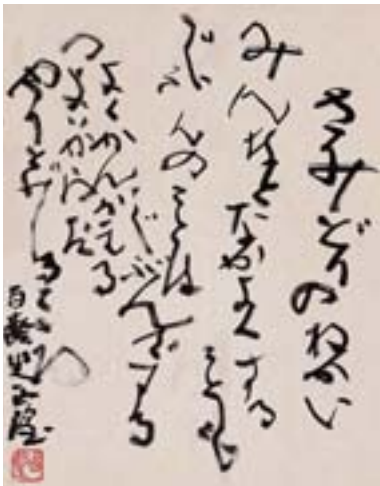 さみどりのねがい
みんなとなかよくする こども
じぶんのことは
じぶんでする
よくかんがえる
つよいからだ